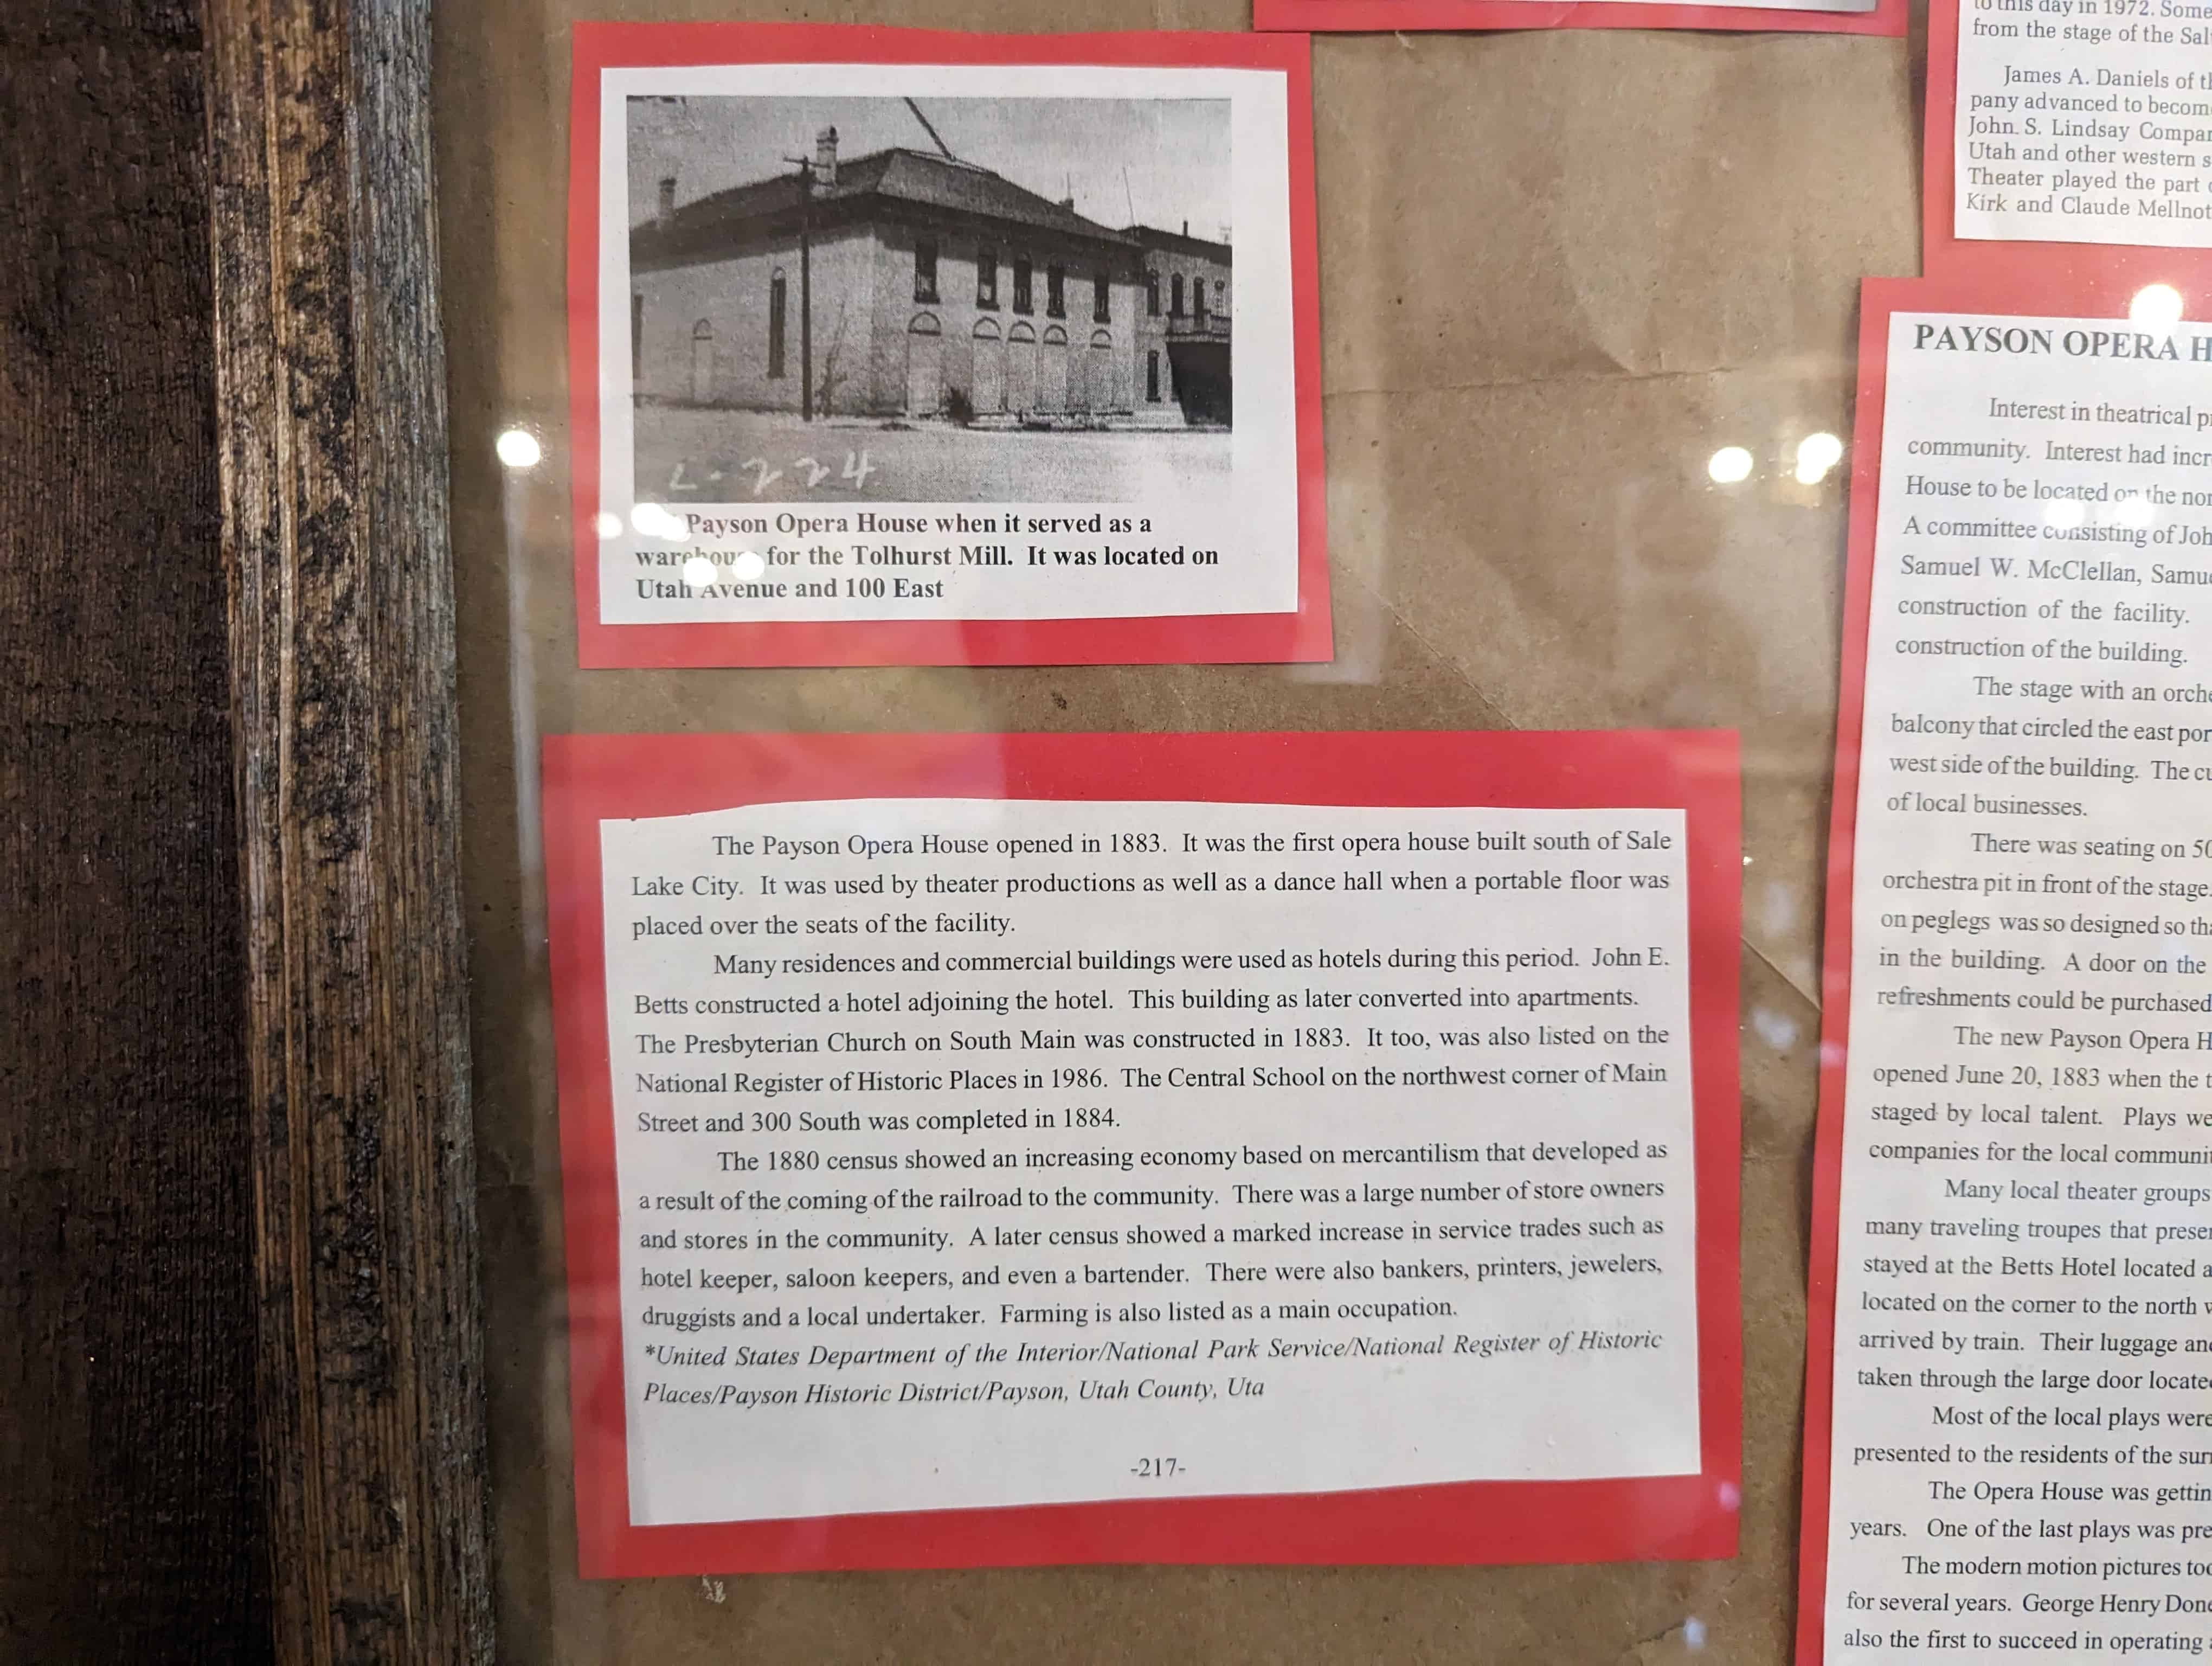 L-224
Payson Opera House when it served as a
warehouse for the Tolhurst Mill. It was located on
Utah Avenue and 100 East
The Payson Opera House opened in 1883. It was the first opera house built south of Sale
Lake City. It was used by theater productions as well as a dance hall when a portable floor was
placed over the seats of the facility.
Many residences and commercial buildings were used as hotels during this period. John E.
Betts constructed a hotel adjoining the hotel. This building as later converted into apartments.
The Presbyterian Church on South Main was constructed in 1883. It too, was also listed on the
National Register of Historic Places in 1986. The Central School on the northwest corner of Main
Street and 300 South was completed in 1884.
The 1880 census showed an increasing economy based on mercantilism that developed as
a result of the coming of the railroad to the community. There was a large number of store owners
and stores in the community. A later census showed a marked increase in service trades such as
hotel keeper, saloon keepers, and even a bartender. There were also bankers, printers, jewelers,
druggists and a local undertaker. Farming is also listed as a main occupation.
*United States Department of the Interior/National Park Service/National Register of Historic
Places/Payson Historic District/Payson, Utah County, Uta
-217-
to this day in 1972. Some
from the stage of the
James A. Daniels of
pany advanced to
John S. Lindsay
Utah and other western
Theater played the part
Kirk and Claude
PAYSON OPERA
Interest in theatrical
community. Interest had
House to be located on the
A committee consisting of
Samuel W. McClellan,
construction of the facility.
construction of the building.
The stage with an
balcony that circled the east
west side of the building. The
of local businesses.
There was seating on
orchestra pit in front of the stage.
on peglegs was so designed so
in the building. A door on the
refreshments could be purchased
The new Payson Opera
opened June 20, 1883 when the
staged by local talent. Plays
companies for the local
Many local theater groups
many traveling troupes that
stayed at the Betts Hotel located
located on the corner to the north
arrived by train. Their luggage
taken through the large door
Most of the local plays were
presented to the residents of the
The Opera House was
years. One of the last plays was
The modern motion pictures
for several years. George Henry
also the first to succeed in operating